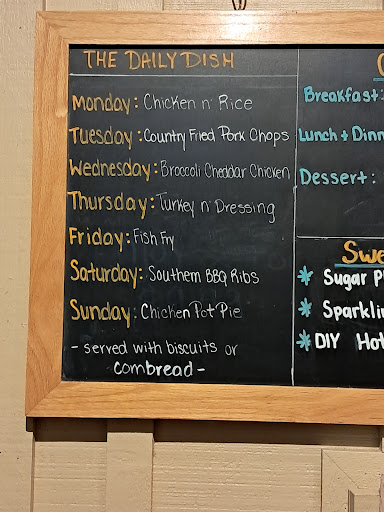 THE DAILY DISH
Monday: Chicken n' Rice
Tuesday: Country Fried Pork Chops
Wednesday: Broccoli Cheddar Chicken
Thursday: Turkey n' Dressing
Friday: Fish Fry
Saturday: Southern BBQ Ribs
Sunday: Chicken Pot Pie
- served with biscuits or
cornbread -
Breakfast:
Lunch + Dinn
Dessert:
Swe
* Sugar P
* Sparkli
* DIY Hot